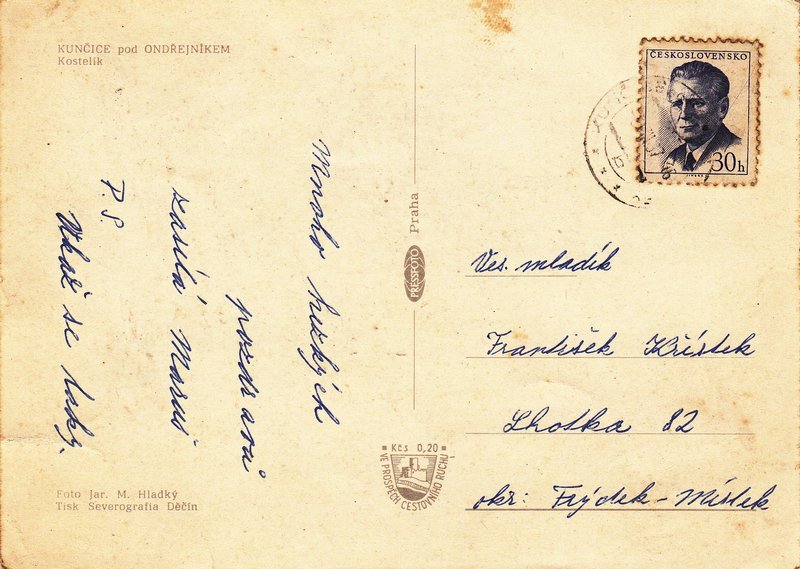 KUNČICE pod ONDŘEJNÍKEM
Kostelík
Mnoho hezkých
pozdravů
zasílá Maruš
P.S.
Ukaž se taky.
Foto Jar. M. Hladký
Tisk Severografia Děčín
PRESSFOTO Praha
Kčs 0,20
VE PROSPĚCH CESTOVNÍHO RUCHU
ČESKOSLOVENSKO
30h
Ves. mladík
František Křístek
Lhotka 82
okr: Frýdek-Místek